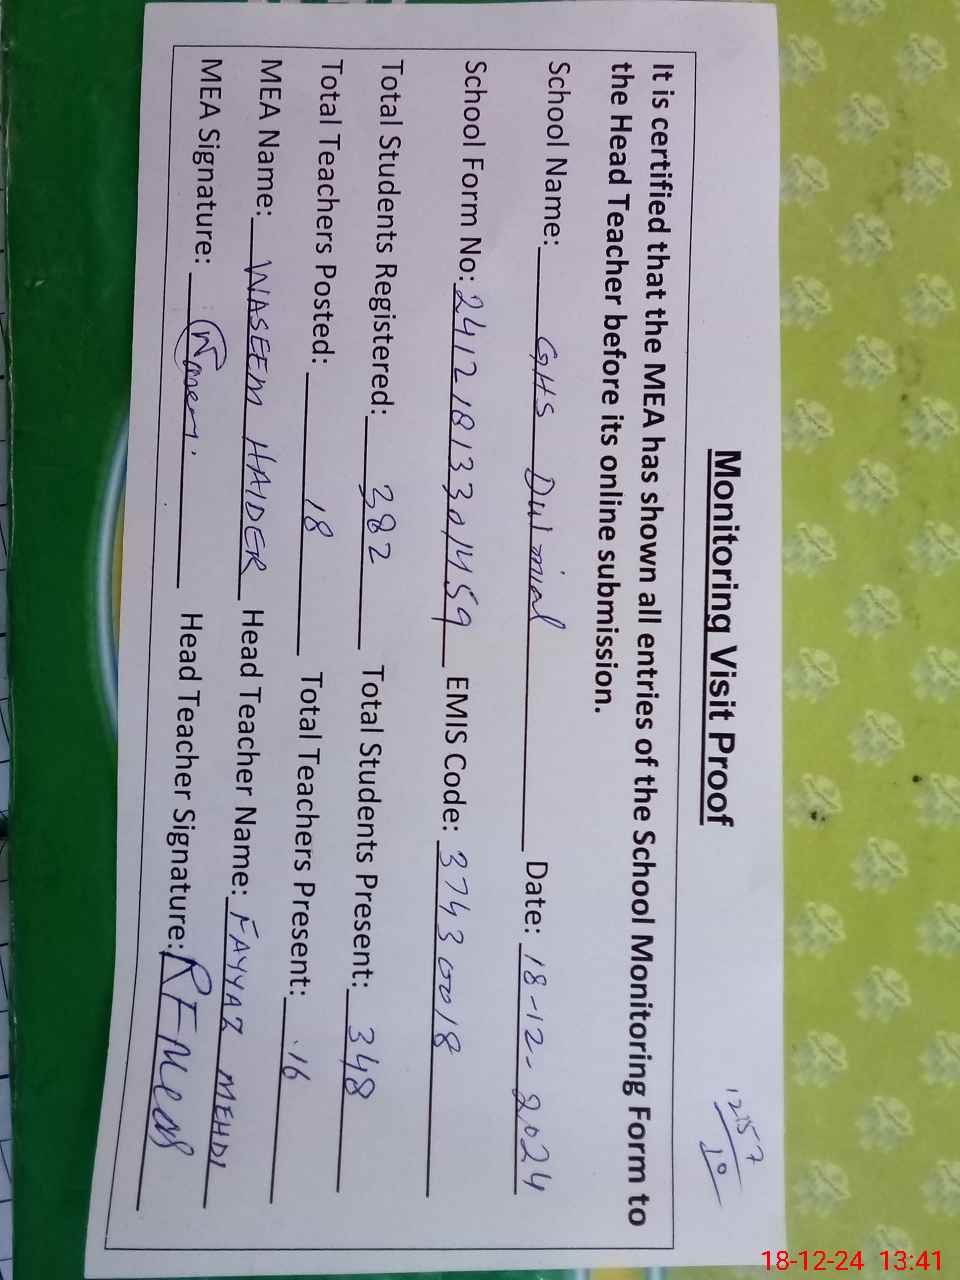 Monitoring Visit Proof
It is certified that the MEA has shown all entries of the School Monitoring Form to
the Head Teacher before its online submission.
School Name: GHS Dulmial Date: 18-12-2024
School Form No: 24121813301459 EMIS Code: 37430018
Total Students Registered: 382 Total Students Present: 348
Total Teachers Posted: 18 Total Teachers Present: 16
MEA Name: WASEEM HAIDER Head Teacher Name: FAYYAZ MEHDI
MEA Signature: Waseem. Head Teacher Signature:
18-12-24 13:41